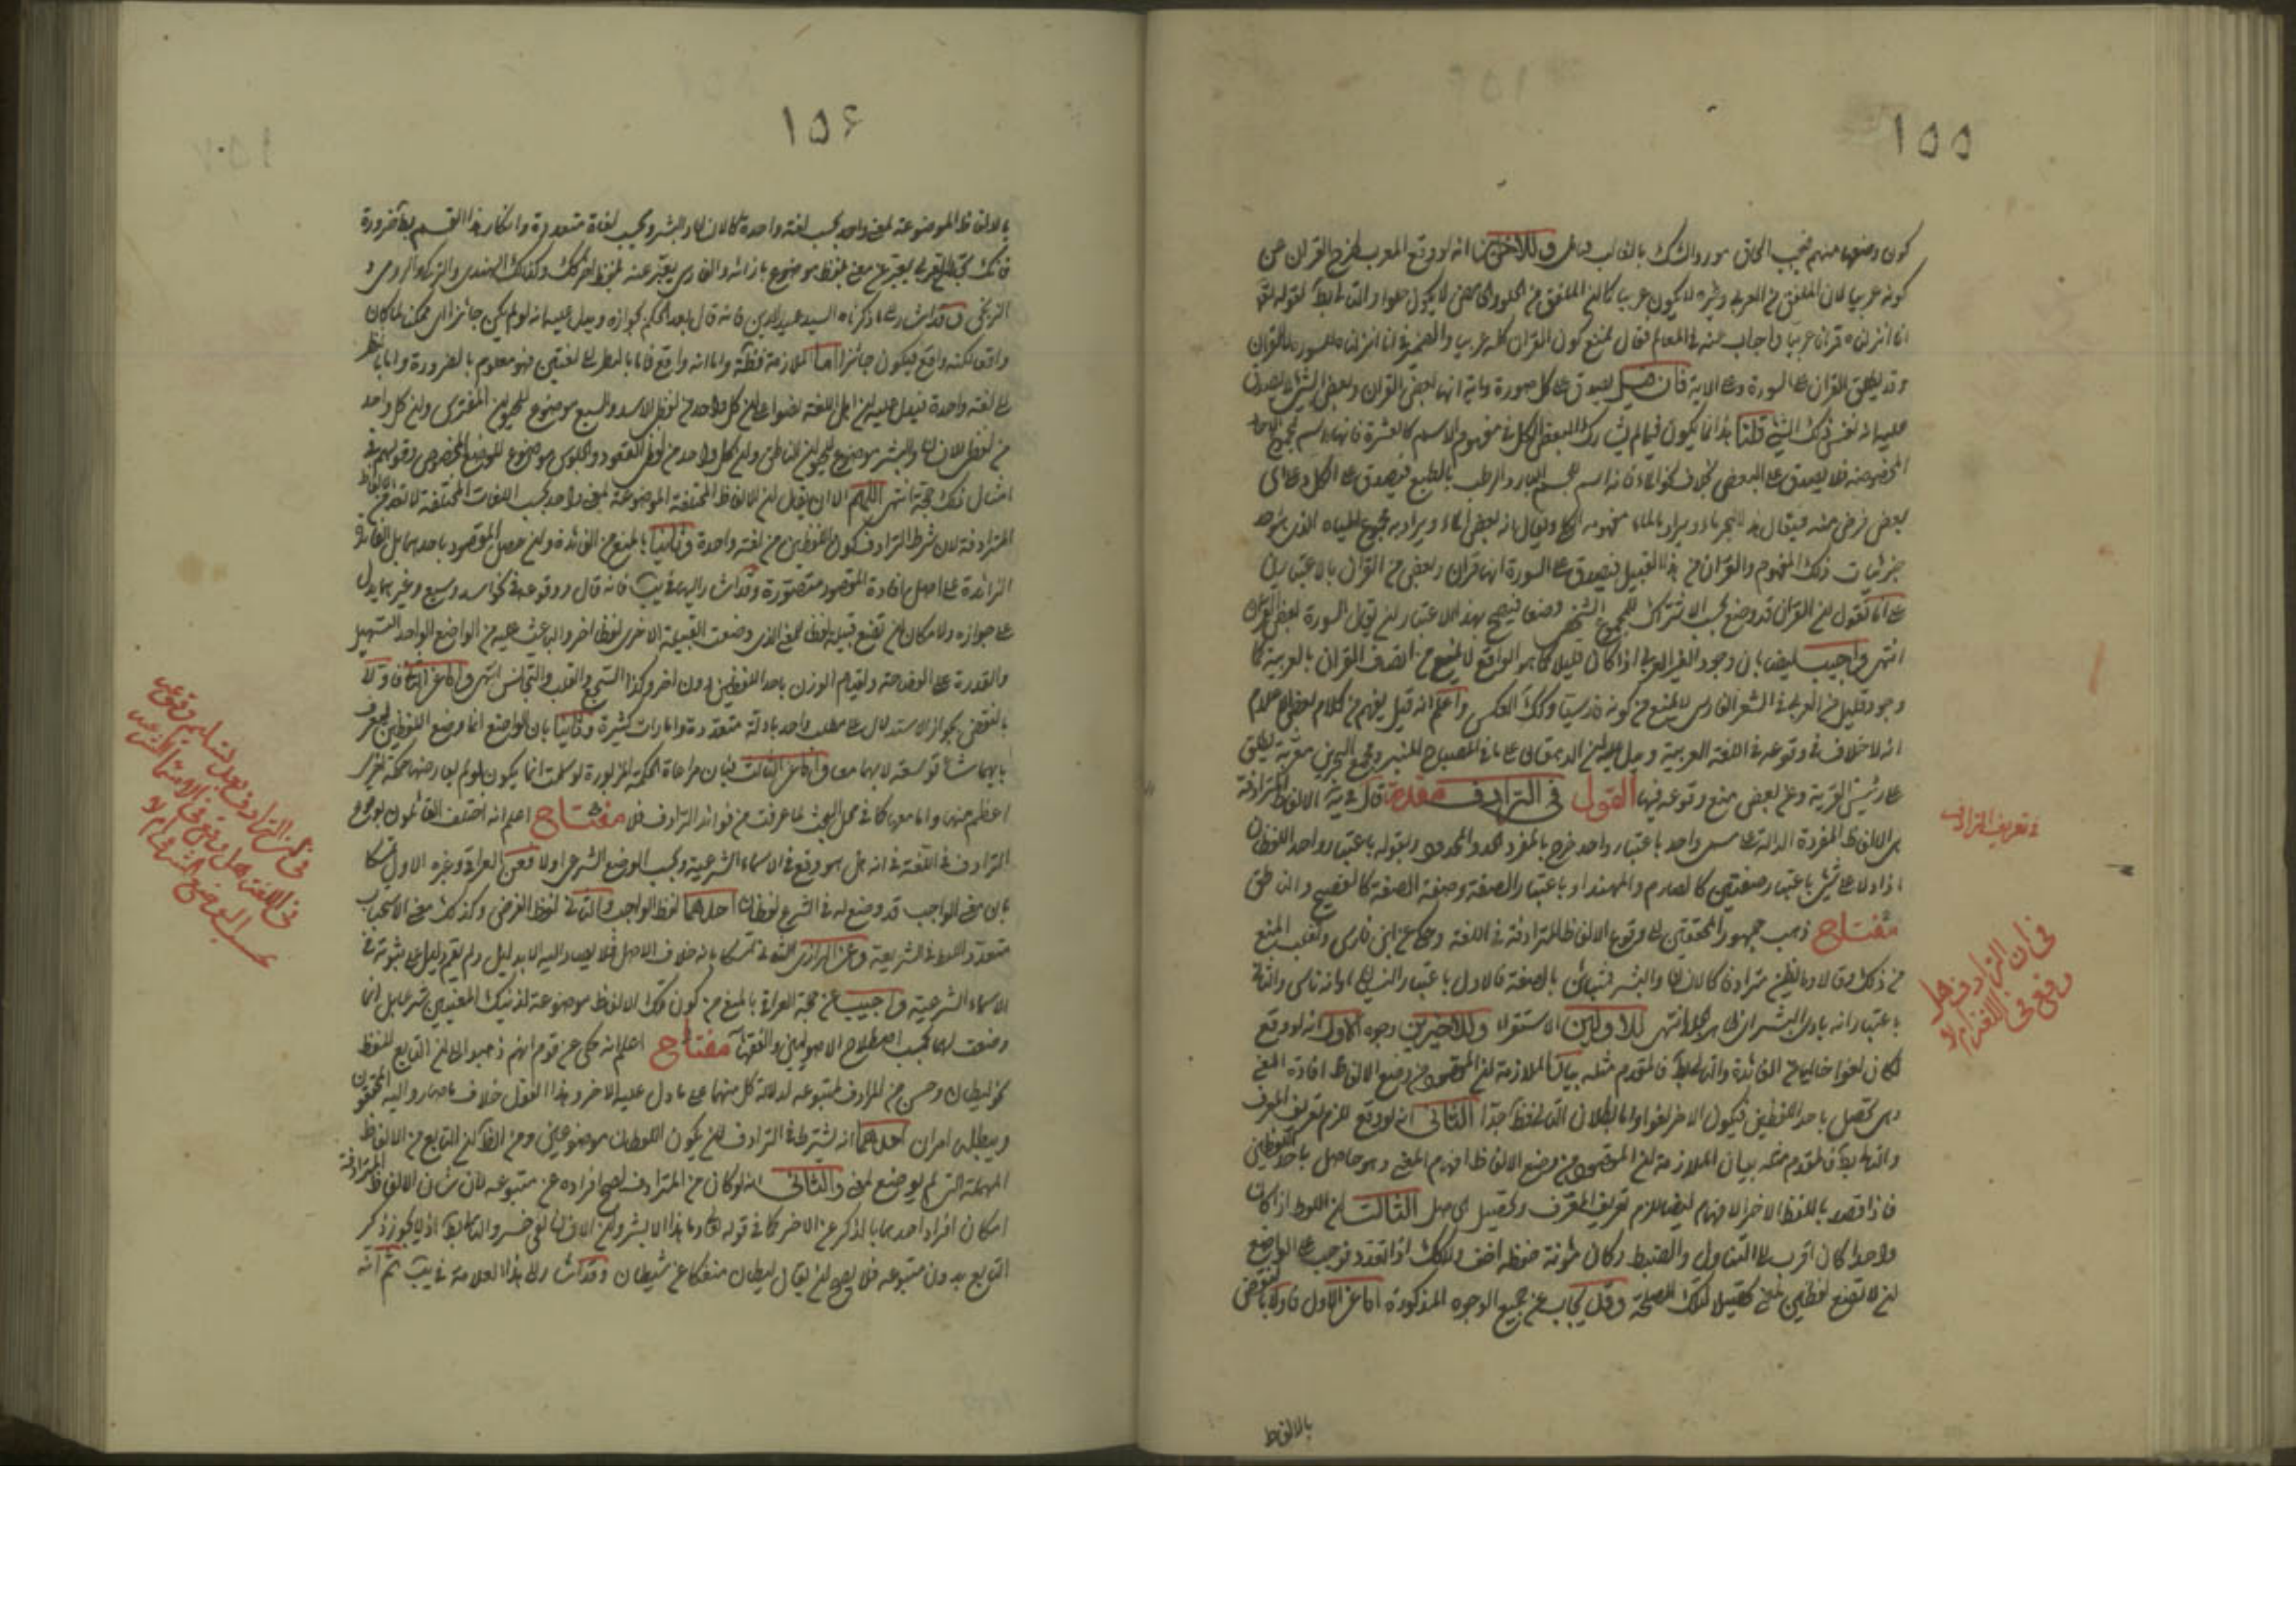 ١٥٥
كون وضعها منهم فيجب الحاق مورد الشك بالغالب فتامل وللاخرين انه لو وقع المعرب لخرج القران عن
كونه عربيا لان الملفق من العربي وغيره لا يكون عربيا كما ان الملفق من الحلو والحامض لا يكون حلوا والتالى بط لقوله تعالى
انا انزلناه قرانا عربيا واجاب عنه في المعالم فقال نمنع كون القران كله عربيا والضمير في انا انزلناه للسورة لا للقران
وقد يطلق القران على السورة وعلى الاية فان قيل يصدق على كل سورة واية انها بعض القران وبعض الشئ لا يصدق
عليه انه نفس ذلك الشئ قلنا هذا انما يكون فيما لم يشارك البعض الكل في مفهوم الاسم كالعشرة فانها اسم لمجموع الاحاد
المخصوصة فلا يصدق على البعض بخلاف نحو الماء فانه اسم للجسم البارد الرطب بالطبع فيصدق على الكل وعلى اى
بعض فرض منه فيقال هذا البحر ماء ويراد بالماء مفهومه الكلى ويقال انه بعض الماء ويراد به مجموع المياه الذى هو احد
جزئيات ذلك المفهوم والقران من هذا القبيل فيصدق على السورة انها قران وبعض من القران بالاعتبارين
على انا نقول ان القران قد وضع بحسب الاشتراك للمجموع الشخصى وضعا فيصح بهذا الاعتبار ان يقال السورة بعض القران
انتهى واجيب ايضا بان وجود الغير العربى اذا كان قليلا كما هو الواقع لا يمنع من اتصاف القران بالعربية كما
وجود قليل من العربى في الشعر الفارسى لا يمنع من كونه فارسيا وكذلك العكس واعلم انه قيل يفهم من كلام بعض الاعلام
انه لا خلاف في وقوعه في اللغة العربية ويدل عليه ان الدهقان على ما في المصباح المنير ومجمع البحرين معرب يطلق
على رئيس القرية وعن بعض منع وقوعه فيها القول في الترادف مقدمة قال في ية الالفاظ المترادفة
هى الالفاظ المفردة الدالة على مسمى واحد باعتبار واحد خرج بالمفرد الحد والمحدود وبقوله باعتبار واحد اللفظان
اذا دلا على شئ باعتبار صفتين كالصارم والمهند او باعتبار الصفة وصفة الصفة كالفصيح والناطق
مفتاح ذهب جمهور المحققين الى وقوع الالفاظ المترادفة في اللغة وحكى عن ابن فارس وثعلب المنع
من ذلك وقالا وما يظن مترادفا كالانسان والبشر فتباين بالصفة فالاول باعتبار النسيان او انه ناس والثانى
باعتبار انه بادى البشرة اى ظاهر الجلد انتهى للاولين الاستقراء وللاخيرين وجوه الاول انه لو وقع
لكان لغوا خاليا عن الفائدة والتالى بط فالمقدم مثله بيان الملازمة ان المقصود من وضع الالفاظ افادة المعنى
وهى تحصل باحد اللفظين فيكون الاخر لغوا واما بطلان التالى فظ جدا الثانى انه لو وقع للزم تعريف المعرف
والتالى بط فالمقدم مثله بيان الملازمة ان المقصود من وضع الالفاظ افهام المعنى وهو حاصل باحد اللفظين
فاذا قصد باللفظ الاخر الافهام ايضا لزم تعريف المعرف وتحصيل الحاصل الثالث ان اللفظ اذا كان
واحدا كان اقرب الى التناول والضبط وكان مؤنة حفظه اخف ولا كذلك اذا تعدد فوجب على الواضع
ان لا تضع لفظين لمعنى تحصيلا لتلك المصلحة وقد يجاب عن جميع الوجوه المذكورة اما عن الاول فاولا بالنقض
بالالفاظ
في تعريف الترادف
في ان الترادف هل
وقع في اللغة ام لا
١٥٦
بالالفاظ الموضوعة لمعنى واحد بحسب لغة واحدة كالانسان والبشر وبحسب لغات متعددة وانكار هذا القسم بط ضرورة
السيد عميد الدين فانه قال بعد الحكم بجوازه ويدل عليه انه لو لم يكن جائزا اى ممكنا لما كان
واقعا لكنه واقع فيكون جائزا اما الملازمة فظاهرة واما انه واقع فاما بالنظر الى لغتين فهو معلوم بالضرورة واما بالنظر
الى لغة واحدة فيدل عليه ان اهل اللغة نصوا على ان كل واحد من لفظى الاسد والسبع موضوع للحيوان المفترس وان كل واحد
من لفظى الانسان والبشر موضوع للحيوان الناطق وان كل واحد من لفظى القعود والجلوس موضوع للوضع المخصوص وقولهم في
امثال ذلك حجة انتهى اللهم الا ان يقال ان الالفاظ المختلفة الموضوعة لمعنى واحد بحسب اللغات المختلفة لا تعد من الالفاظ
المترادفة لان شرط الترادف كون اللفظين من لغة واحدة وثانيا بالمنع من الفائدة وان حصل المقصود باحدهما بل الفائدة
الزائدة على اصل افادة المقصود متصورة وقد اشار اليها في يب فانه قال ووقوعه في نحو اسد وسبع وغيرهما يدل
على جوازه ولامكان ان تضع قبيلة لفظا لمعنى الذى وضعت القبيلة الاخرى لفظا اخر والباعث عليه من الواضع الواحد التسهيل
والقدرة على الفصاحة ولقيام الوزن باحد اللفظين دون اخر وكذا السجع والقلب والتجانس انتهى واما عن الثانى فاولا
بالنقض بجواز الاستدلال على مطلب واحد بادلة متعددة وامارات كثيرة وثانيا بان الواضع انما وضع اللفظين ليعرف
بايهما شاء توسعة لا بهما معا واما عن الثالث فبان مراعاة الحكمة المزبورة لو سلمت انما يكون لو لم يعارضها حكمة اخرى
اعظم منها واما معها كما في محل البحث لما عرفت من فوائد الترادف فلا مفتاح اعلم انه اختلف القائلون بوقوع
الترادف في اللغة في انه هل هو وقع في الاسماء الشرعية وبحسب الوضع الشرعى اولا فعن العراقى وغيره الاول تمسكا
بان معنى الواجب قد وضع له في الشرع لفظان احدهما لفظ الواجب والثانى لفظ الفرض وكذلك معنى الاستحباب
متعدد اللفظ في الشريعة وعن الرازى الثانى تمسكا بانه خلاف الاصل فلا يصار اليه الا بدليل ولم يقم دليل على ثبوته في
الاسماء الشرعية واجيب عن حجة العراقى بالمنع من كون تلك الالفاظ موضوعة لذينك المعنيين شرعا بل انما
وضعت لهما بحسب اصطلاح الاصوليين والفقهاء مفتاح اعلم انه حكى عن قوم انهم ذهبوا الى ان التابع للفظ
نحو ليطان وحسن بسن المرادف لمتبوعه لدلالة كل منهما على ما دل عليه الاخر وهذا القول خلاف ما صار اليه المحققون
ويبطله امران احدهما انه يشترط في الترادف ان يكون اللفظان موضوعين ومن الظاهر ان التابع من الالفاظ
المهملة التى لم يوضع لمعنى والثانى انه لو كان من المترادف لصح افراده عن متبوعه لان شان الالفاظ المترادفة
امكان افراد احدهما بالذكر عن الاخر كما في قوله تعالى وما هذا الا بشر وان الانسان لفى خسر والتالى بط اذ لا يجوز ذكر
التابع بدون متبوعه فلا يصح ان يقال ليطان منفكا عن شيطان وقد اشار الى هذا العلامة في يب ثم انه
في ان الترادف بعد تسليم وقوعه
في اللغة هل وقع في الاسماء الشرعية
بحسب الوضع الشرعى ام لا